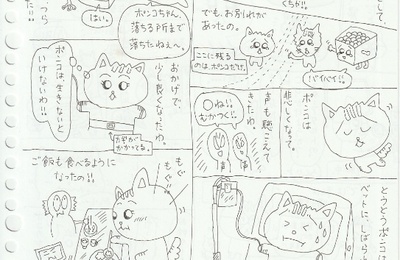 して、
くちが!!
でも、お別れが
あったの。
ここに残る
のは、ポンコだけ。
バイバイ!!
ポンコは
悲しくなって。
声も聴こえて
きたわ
○ね!!
むかつく!!
とうとうポンコは
ベットに、しばら
つら
た!!
はい。
ポンコちゃん、
落ちる所まで
落ちたねえ〜。
おかげで、
少し良くなったわ。
ポンコは、生きないと
いけないわ!!
カギが
かかってる。
ご飯も食べるように
なったの!!
もぐ
もぐ!!